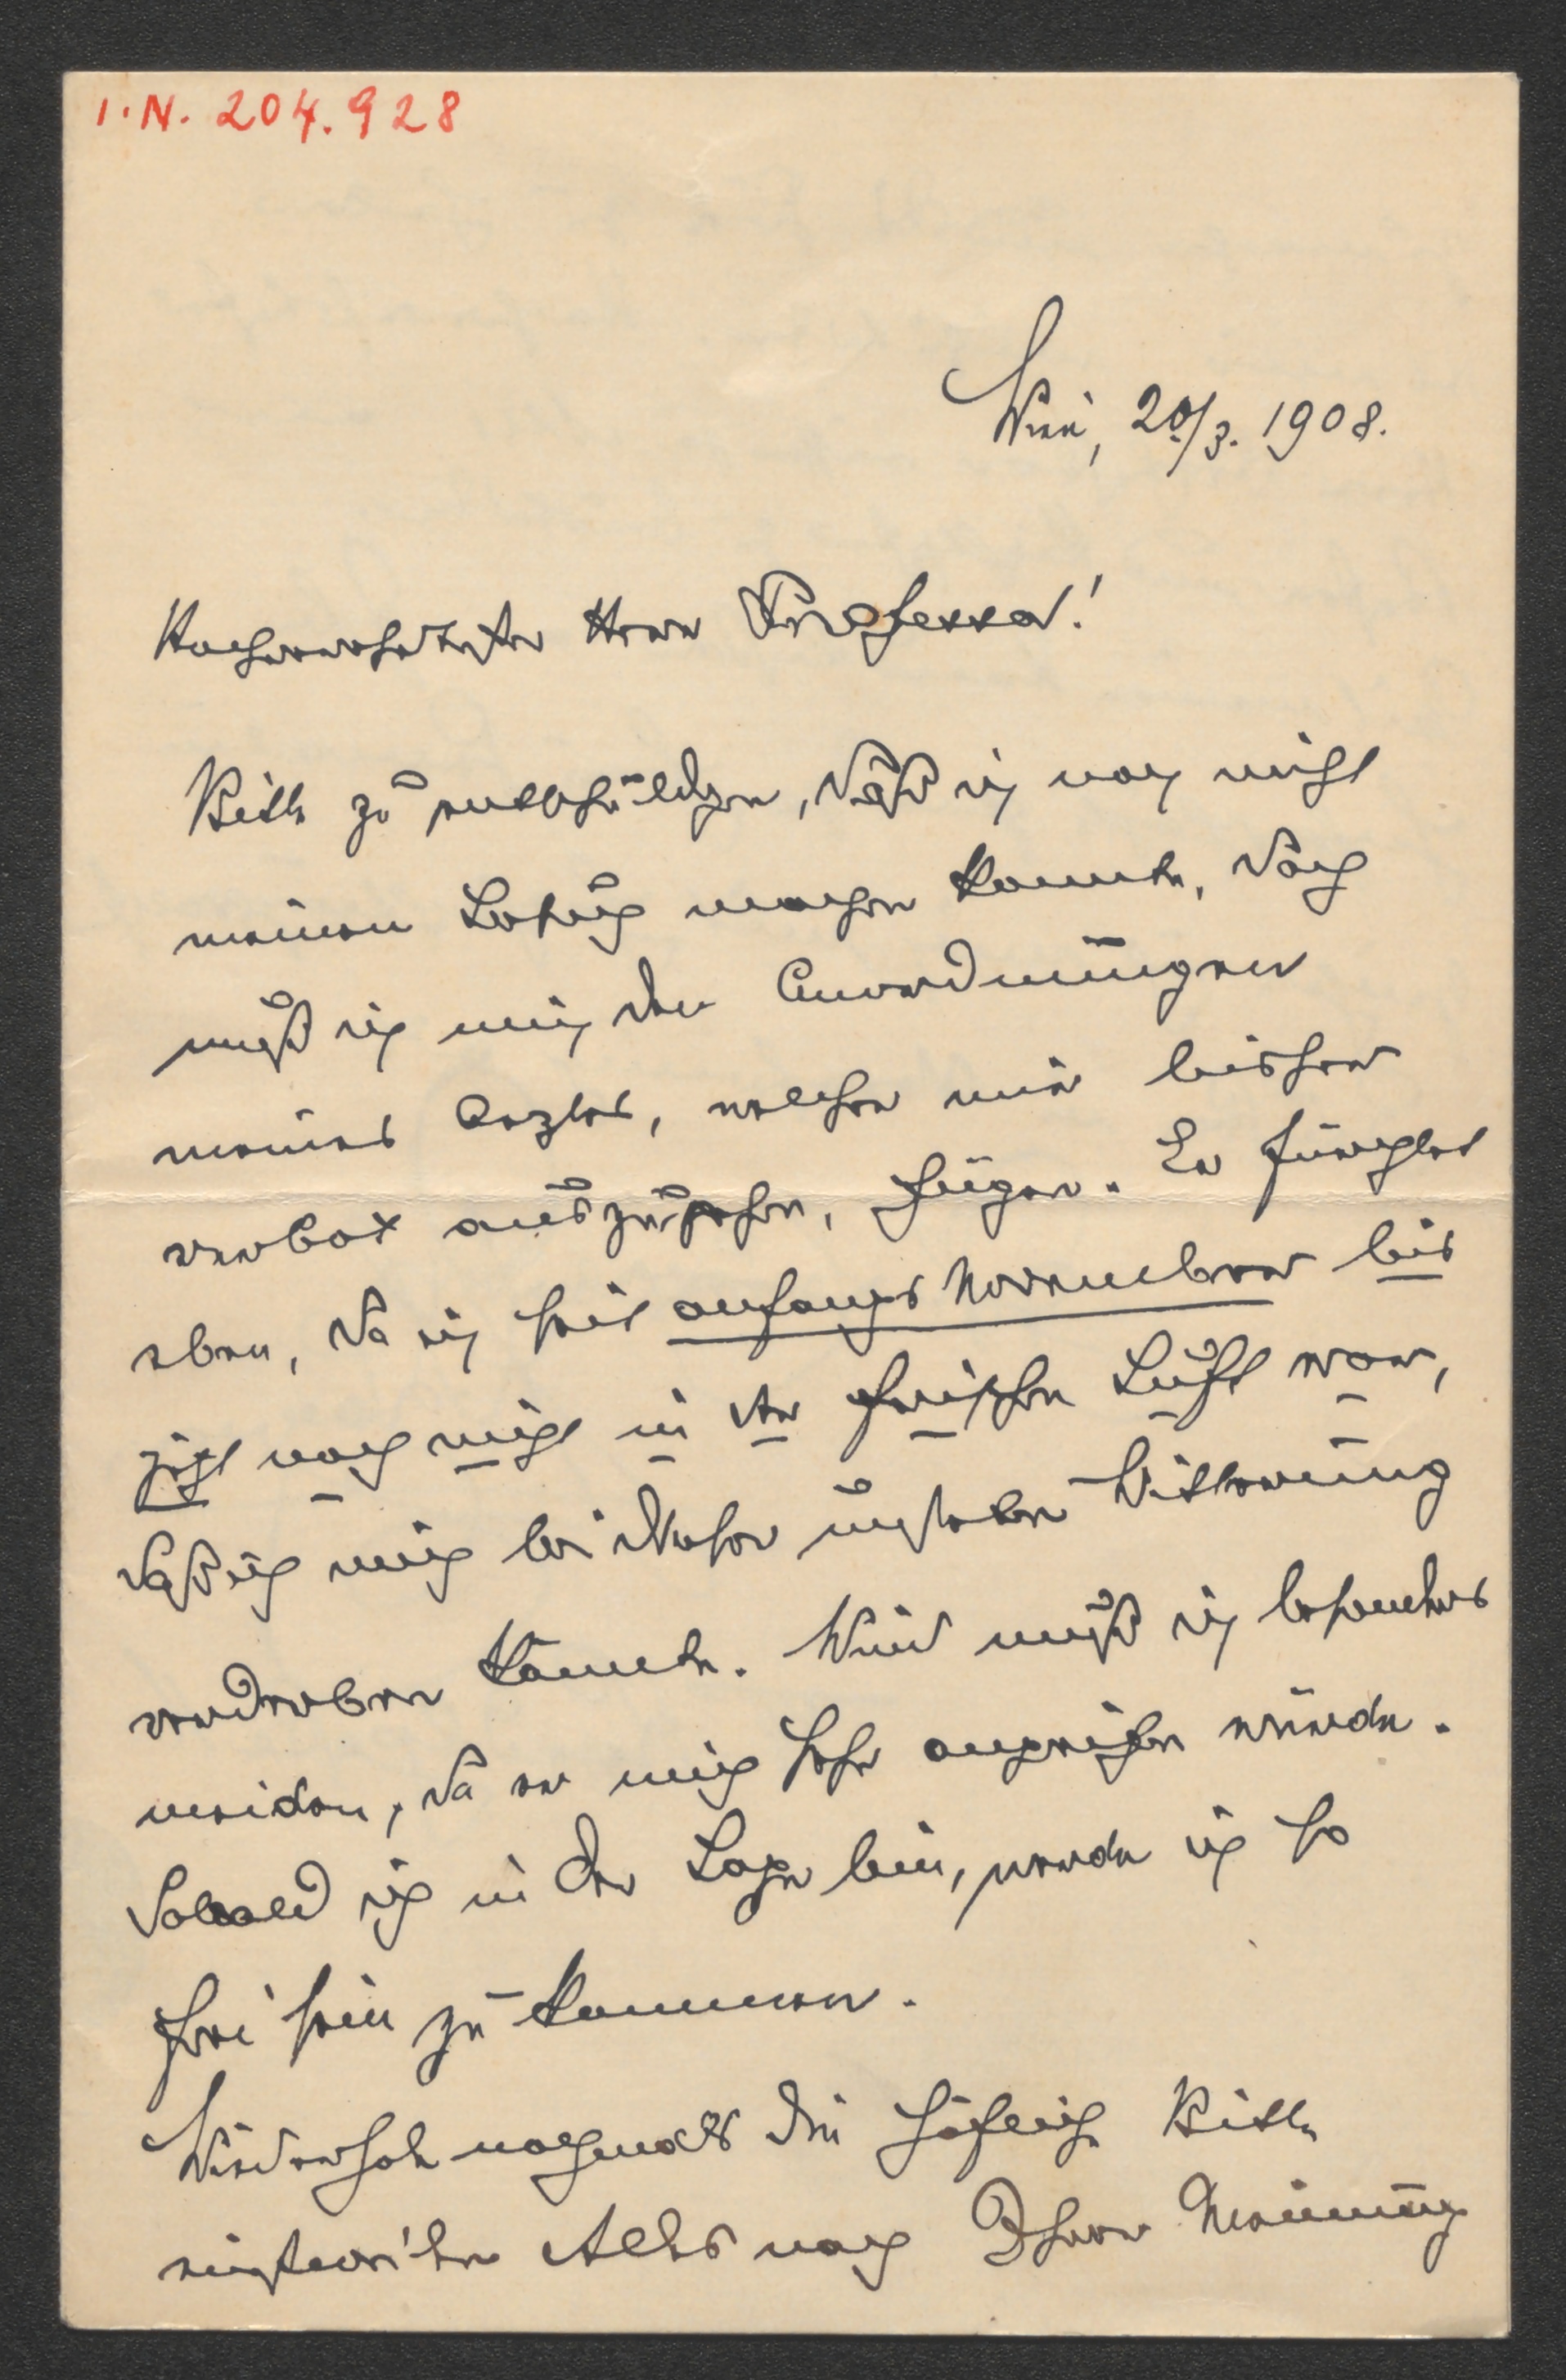 I.N. 204.928
Wien, 20/3. 1908.
Hochverehrtester Herr Professor!
Bitte zu entschuldigen, daß ich noch nicht
meinen Besuch machen konnte, doch
muß ich mich den Anordnungen
meines Arztes, welcher mir bisher
verbot auszugehen, fügen. Er fürchtet
eben, da ich seit anfangs November bis
jetzt noch nicht in der frischen Luft war,
daß ich mich bei dieser Witterung
verderben könnte. Wind muß ich besonders
meiden, da er mich sehr angreifen würde.
Sobald ich in der Lage bin, werde ich so
frei sein zu kommen.
Wiederhole nochmals die höfliche Bitte
Alles nach Ihrer Meinung